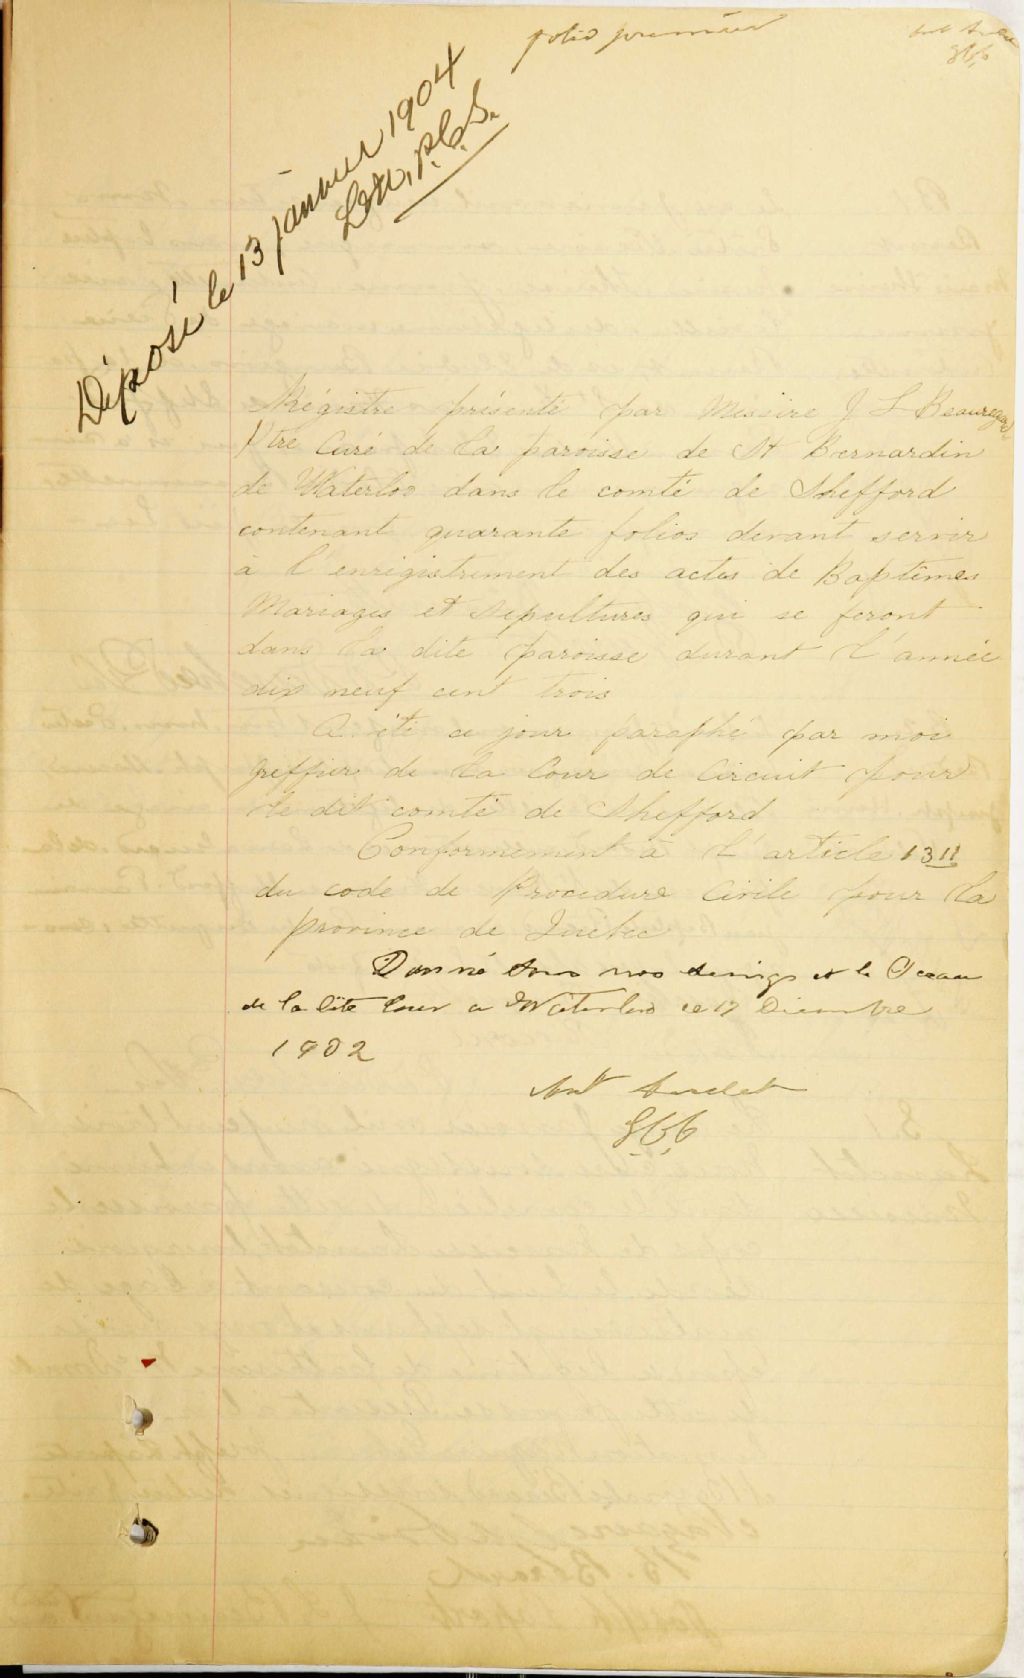 folio premier
G.C.C.
Déposé le 13 janvier 1904
P.C.S.
Régistre présenté par Messire J L Beauregard
Ptre Curé de la paroisse de St Bernardin
de Waterloo dans le comté de Shefford
contenant quarante folios devant servir
à l'enrigistrement des actes de Baptêmes
Mariages et Sepultures qui se feront
dans la dite paroisse durant l'année
dix neuf cent trois
A été ce jour paraphé par moi
greffier de la Cour de Circuit pour
le dit comté de Shefford
Conformement à l'article 1311
du code de Procedure Civile pour la
province de Québec
Donné sous nos seings et le Sceau
de la dite Cour a Waterloo ce 17 Décembre
1902
G.C.C.